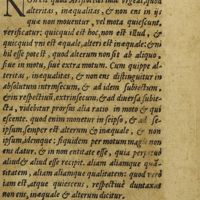 alteritas, inæqualitas, & non ens in ijs
quæ non mouentur, vel motu quiescunt,
verificatur; quicquid est hoc, non est illud, &
quicquid vni est æquale, alteri est inæquale: & ni
hil esse potest, quod alterum non sit ab aliquo,
siue in motu, siue extra motum. Cum quippe al
teritas, inæqualitas, & non ens distinguitur in
absolutum intrinsecum, & ad idem subiectum
& in respectiuum, extrinsecum, & ad diuersa subie
cta, videbitur prorsus alia ratio in moto & qui
escente. quod enim mouetur in seipso, & ad se
ipsum, semper est alterum & inæquale, & non
ipsum, idemque: siquidem per motum magis
ens datur, & in non entitate esse, quia perpetuo
aliud & aliud esse recipit. aliam aliamque quan
titatem, aliam aliamque qualitatem: quod vero
iam est, atque quiescens, respectiue duntaxat
non ens, inæquale & alterum dicitur.